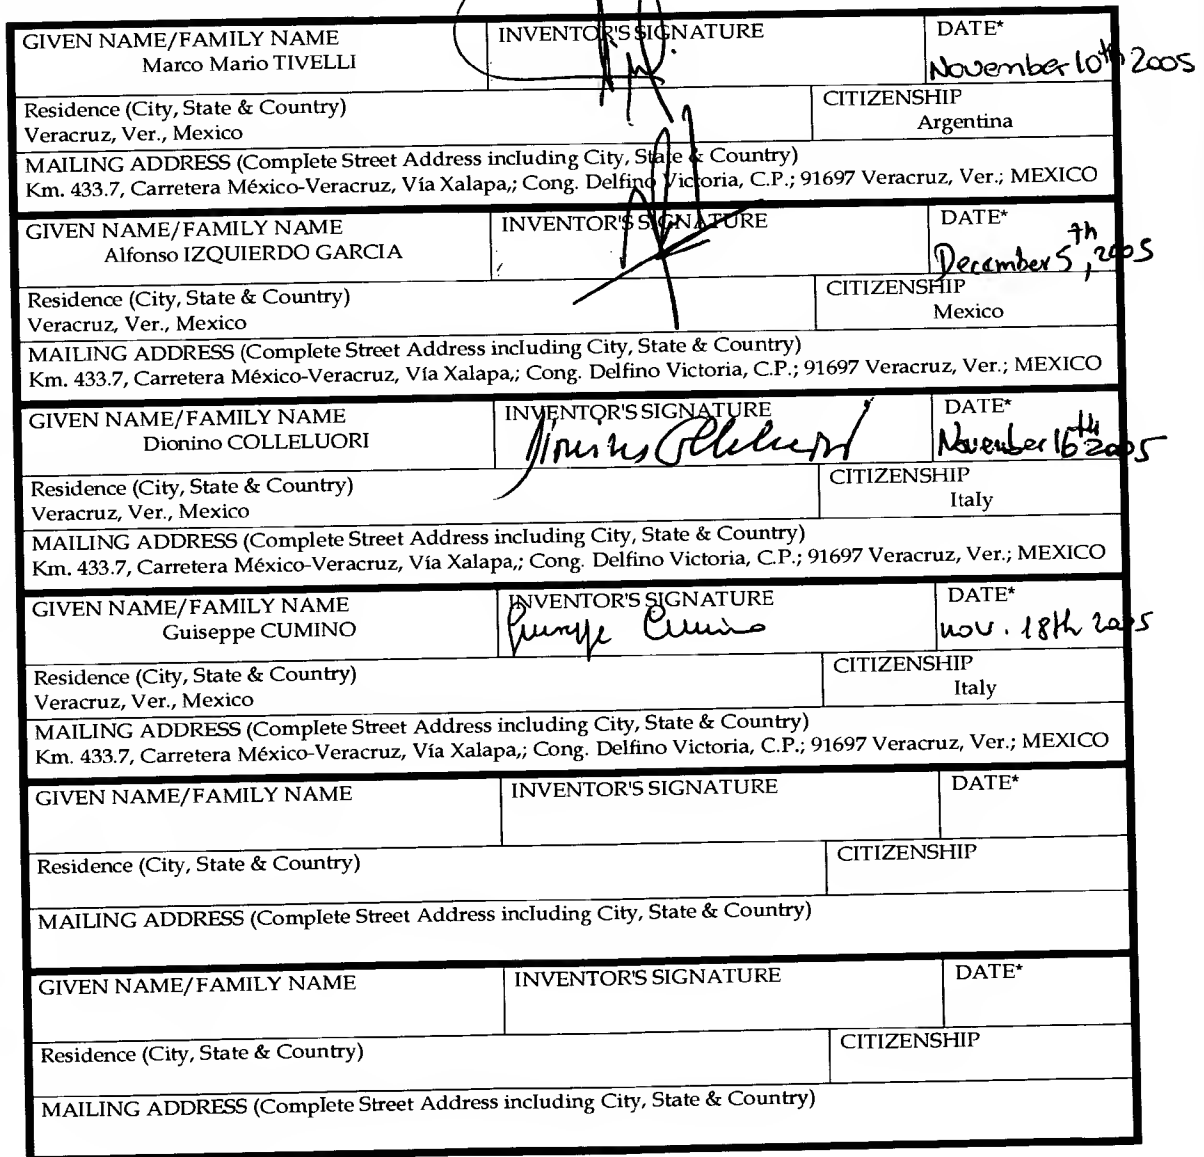 GIVEN NAME/FAMILY NAME INVENTOR'S SIGNATURE DATE*
Marco Mario TIVELLI November 10th 2005
Residence (City, State & Country) CITIZENSHIP
Veracruz, Ver., Mexico Argentina
MAILING ADDRESS (Complete Street Address including City, State & Country)
Km. 433.7, Carretera México-Veracruz, Vía Xalapa,; Cong. Delfino Victoria, C.P.; 91697 Veracruz, Ver.; MEXICO
GIVEN NAME/FAMILY NAME INVENTOR'S SIGNATURE DATE*
Alfonso IZQUIERDO GARCIA December 5th, 2005
Residence (City, State & Country) CITIZENSHIP
Veracruz, Ver., Mexico Mexico
MAILING ADDRESS (Complete Street Address including City, State & Country)
Km. 433.7, Carretera México-Veracruz, Vía Xalapa,; Cong. Delfino Victoria, C.P.; 91697 Veracruz, Ver.; MEXICO
GIVEN NAME/FAMILY NAME INVENTOR'S SIGNATURE DATE*
Dionino COLLELUORI Dionino Colleluori November 16th 2005
Residence (City, State & Country) CITIZENSHIP
Veracruz, Ver., Mexico Italy
MAILING ADDRESS (Complete Street Address including City, State & Country)
Km. 433.7, Carretera México-Veracruz, Vía Xalapa,; Cong. Delfino Victoria, C.P.; 91697 Veracruz, Ver.; MEXICO
GIVEN NAME/FAMILY NAME INVENTOR'S SIGNATURE DATE*
Guiseppe CUMINO Giuseppe Cumino nov. 18th 2005
Residence (City, State & Country) CITIZENSHIP
Veracruz, Ver., Mexico Italy
MAILING ADDRESS (Complete Street Address including City, State & Country)
Km. 433.7, Carretera México-Veracruz, Vía Xalapa,; Cong. Delfino Victoria, C.P.; 91697 Veracruz, Ver.; MEXICO
GIVEN NAME/FAMILY NAME INVENTOR'S SIGNATURE DATE*
Residence (City, State & Country) CITIZENSHIP
MAILING ADDRESS (Complete Street Address including City, State & Country)
GIVEN NAME/FAMILY NAME INVENTOR'S SIGNATURE DATE*
Residence (City, State & Country) CITIZENSHIP
MAILING ADDRESS (Complete Street Address including City, State & Country)